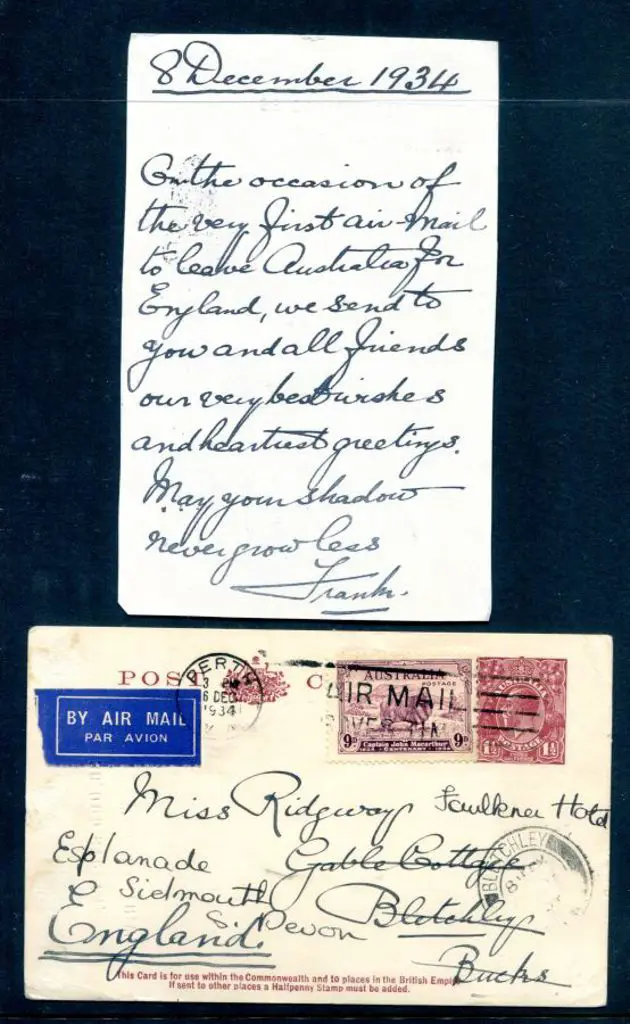 8 December 1934
On the occasion of
the very first air-mail
to leave Australia for
England, we send to
you and all friends
our very best wishes
and heartiest greetings.
May your shadow
never grow less
Frank.
POST C
PERTH
3 P
6 DEC
1934
BY AIR MAIL
PAR AVION
AUSTRALIA
POSTAGE
AIR MAIL
9D Captain John Macarthur 9D
CENTENARY
1½ POSTAGE 1½
Miss Ridgway Faulkner Hotel
Esplanade Gable Cottage
Sidmouth Bletchley
S. Devon
England. Bucks
BLETCHLEY
This Card is for use within the Commonwealth and to places in the British Empire
If sent to other places a Halfpenny Stamp must be added.